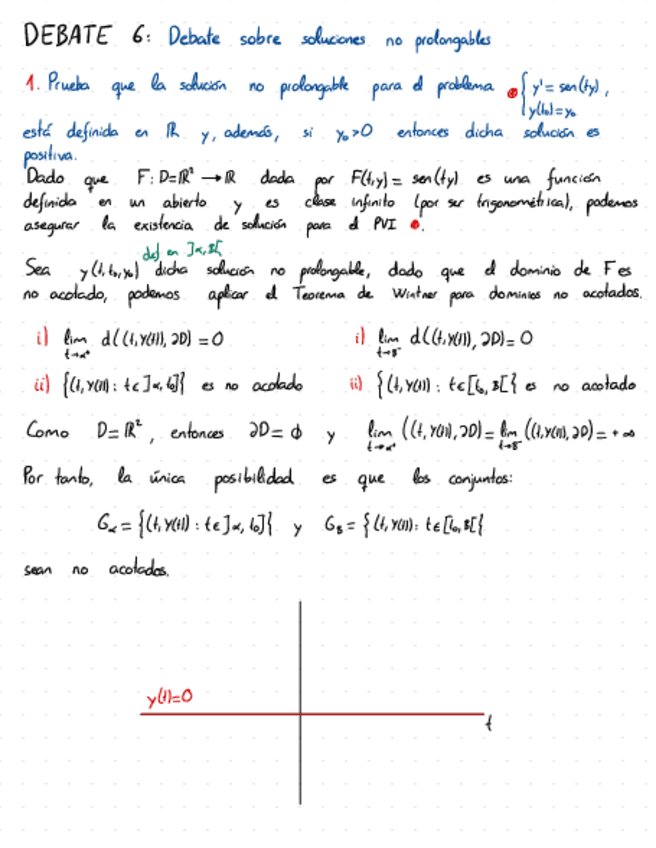 DEBATE 6: Debate sobre soluciones no prolongables
1. Prueba que la solución no prolongable para el problema • { y' = sen(ty),
y(t₀)=y₀
está definida en ℝ y, además, si y₀>0 entonces dicha solución es
positiva.
Dado que F: D=ℝ² → ℝ dada por F(t,y) = sen(ty) es una función
definida en un abierto y es clase infinito (por ser trigonométrica), podemos
asegurar la existencia de solución para el PVI •.
def en ]α,β[
Sea y(t,t₀,y₀) dicha solución no prolongable, dado que el dominio de F es
no acotado, podemos aplicar el Teorema de Wintner para dominios no acotados.
i) lim t→α⁺ d((t,y(t)), ∂D) = 0 i) lim t→β⁻ d((t,y(t)), ∂D) = 0
ii) {(t,y(t)) : t∈]α,t₀]} es no acotado ii) {(t,y(t)) : t∈[t₀,β[} es no acotado
Como D=ℝ², entonces ∂D=∅ y lim t→α⁺ ((t,y(t)),∂D) = lim t→β⁻ ((t,y(t)),∂D) = +∞
Por tanto, la única posibilidad es que los conjuntos:
Gα = {(t,y(t)) : t∈]α,t₀]} y Gβ = {(t,y(t)) : t∈[t₀,β[}
sean no acotados.
y(t)=0
t